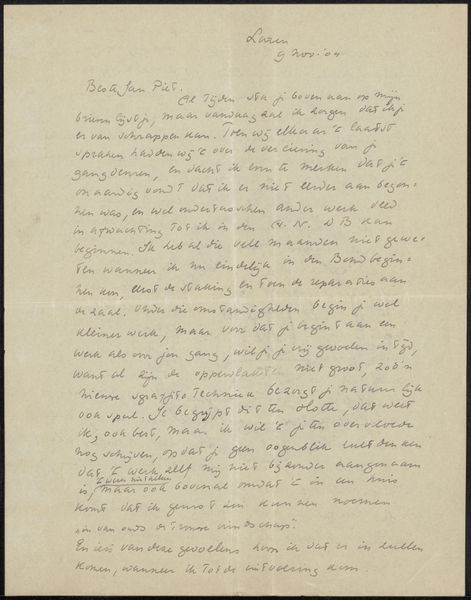 Laren
9 Nov. '04
Beste Jan Piet.
Al tijden sta je bovenaan op mijn
brieven lijstje, maar vandaag zal ik zorgen dat ik je
er van schrappen kan. Toen wij elkaar 't laatst
spraken hadden wij 't over de versiering van je
gang deuren, en dacht ik eens te merken dat je 't
onaardig vondt dat ik er niet eerder aan begon-
nen was, en wel ondertusschen ander werk deed
in afwachting tot ik in den A. N. D B kan
beginnen. Ik heb al die vele maanden niet gewe-
ten wanneer ik nu eindelijk in den Bond begin-
nen kon, eerst de staking en toen de reparaties aan
de zaal. Onder die omstandigheden begin je wel
kleiner werk, maar voor dat je begint aan een
werk als voor jou gang, wil je je vrij gevoelen in tijd,
want al zijn de oppervlakten niet groot, zoo'n
nieuwe sgraffito techniek bezorgt je natuurlijk
ook spul. Je begrijpt dit ten slotte, dat weet
ik, ook best, maar ik wil 't je ten overvloede
nog schrijven, opdat je geen oogenblik zult denken
dat 't werk zelf mij niet bijzonder aangenaam
is, maar ook bovenal omdat 't in een huis
komt dat ik gerust zou kunnen noemen
van onze vriendschap.
En iets van deze gevoelens hoop ik dat er in zullen
komen, wanneer ik tot de uitvoering kom.